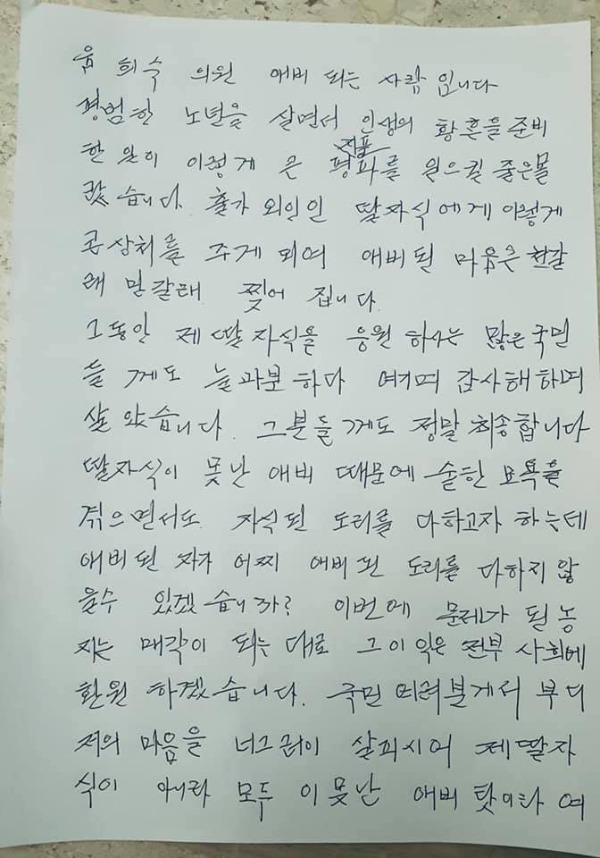 윤희숙 의원 애비 되는 사람 입니다
평범한 노년을 살면서 인생의 황혼을 준비
한 일이 이렇게 큰 평파를 일으킬 줄은몰
지표
랐습니다. 출가 외인인 딸자식에게 이렇게
큰상처를 주게 되여 애비된 마음은 천갈
래 만갈래 찢어 집니다.
그동안 제 딸자식을 응원 하시는 많은국민
들께도 늘과분하다 여기며 감사해하며
살았습니다. 그분들께도 정말 죄송합니다
딸자식이 못난 애비 때문에 숱한 모욕을
겪으면서도 자식된 도리를 다하고자 하는데
애비된 자가 어찌 애비된 도리를 다하지 않
을수 있겠습니까? 이번에 문제가 된 농
지는 매각이 되는 대로 그이익은 전부 사회에
환원 하겠습니다. 국민 여러분게서 부디
저의 마음을 너그러이 살피시어 제딸자
식이 아니라 모두 이못난 애비 탓이라 여